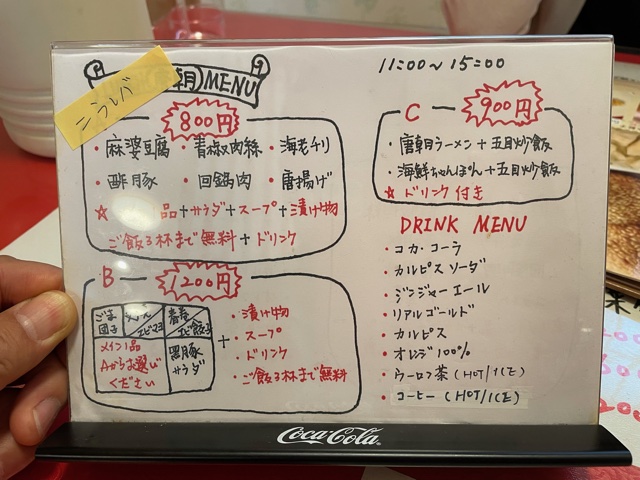 こうしバ
朝)MENU
11:00〜15:00
800円
・麻婆豆腐 ・青椒肉絲 ・海老チリ
・酢豚 ・回鍋肉 ・唐揚げ
☆ 品+サラダ+スープ+漬け物
ご飯3杯まで無料+ドリンク
C 900円
・唐朝ラーメン+五目炒飯
・海鮮ちゃんぽん+五目炒飯
☆ドリンク付き
B 1200円
ごま団子
エビマヨ
春巻
エビ餃子
メイン1品
Aからお選び
ください
黒豚
サラダ
+
・漬け物
・スープ
・ドリンク
・ご飯3杯まで無料
DRINK MENU
・コカ・コーラ
・カルピスソーダ
・ジンジャーエール
・リアルゴールド
・カルピス
・オレンジ100%
・ウーロン茶(HOT/ICE)
・コーヒー(HOT/ICE)
Coca-Cola